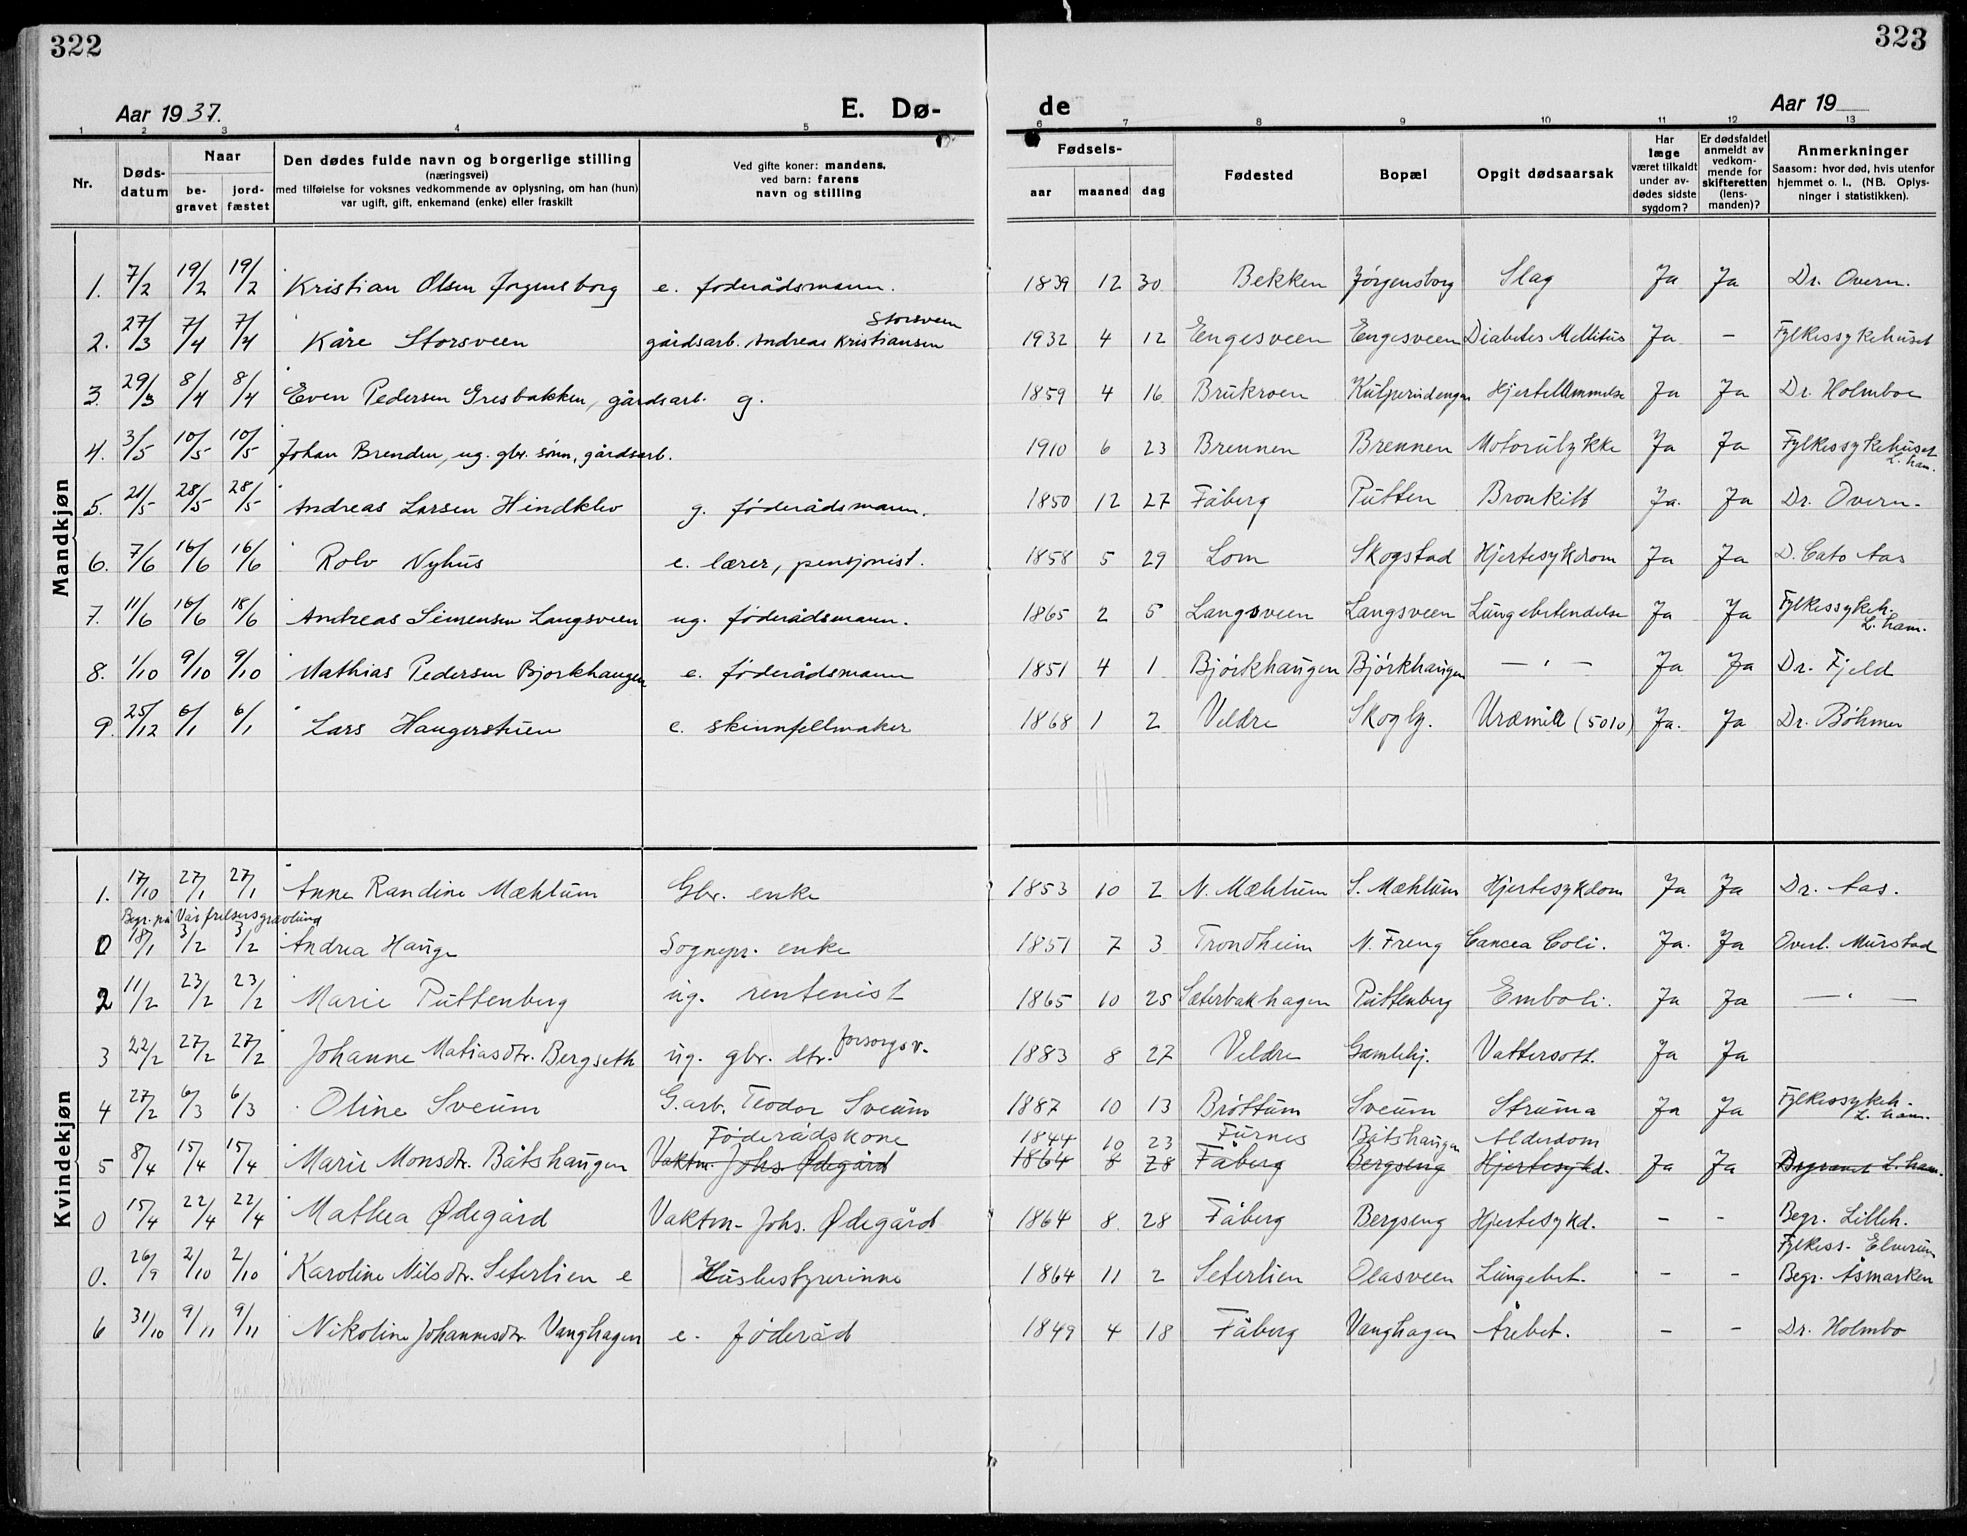 322
323
Aar 1937.
E. Dø-
de
Aar 19
1 2 3 4 5 6 7 8 9 10 11 12 13
Nr.
Døds-datum
Naar
be-gravet
jord-fæstet
Den dødes fulde navn og borgerlige stilling
(næringsvei)
med tilføielse for voksnes vedkommende av oplysning, om han (hun)
var ugift, gift, enkemand (enke) eller fraskilt
Ved gifte koner: mandens,
ved barn: farens
navn og stilling
Fødsels-
aar maaned dag
Fødested
Bopæl
Opgit dødsaarsak
Har læge været tilkaldt under av-dødes sidste sygdom?
Er dødsfaldet anmeldt av vedkom-mende for skifteretten (lens-manden)?
Anmerkninger
Saasom: hvor død, hvis utenfor
hjemmet o. l., (NB. Oplys-
ninger i statistikken).
Mandkjøn
1. 7/2 19/2 19/2 Kristian Olsen Jørgensborg e. føderådsmann. 1839 12 30 Bekken Jörgensborg Slag Ja Ja Dr. Overn.
Storsveen
2. 27/3 7/4 7/4 Kåre Storsveen gårdsarb. Andreas Kristiansen 1932 4 12 Engesveen Engesveen Diabetes Mellitus Ja - Fylkessykehuset
3. 29/3 8/4 8/4 Even Pedersen Gresbakken, gårdsarb. g. 1859 4 16 Brukroen Hjertelammelse Ja Ja Dr. Holmboe
4. 3/5 10/5 10/5 Johan Brenden, ug. gbr. sönn, gårdsarb. 1910 6 23 Brennen Brennen Motorulykke Ja Ja Fylkessykehuset
L. ham.
5. 21/5 28/5 28/5 Andreas Larsen Hindklev g. føderådsmann. 1850 12 27 Fåberg Putten Bronkitt Ja. Ja Dr. Overn.
6. 7/6 16/6 16/6 Rolv Nyhus e. lærer, pensjonist. 1858 5 29 Lom Skogstad Hjertesykdom Ja Ja D. Cato Aas
7. 11/6 16/6 18/6 Andreas Simensen Langsveen ug. føderådsmann. 1865 2 5 Langsveen Langsveen Lungebetendelse Ja Ja Fylkessykeh.
L. ham.
8. 1/10 9/10 9/10 Mathias Pedersen Bjorkhaugen e. føderådsmann 1851 4 1 Bjórkhaugen Bjórkhaugen — " — Ja Ja Dr. Fjeld
9. 25/12 6/1 6/1 Lars Haugerstuen e. skinnfellmaker 1868 1 2 Veldre Skogly. Uræmia (5010) Ja. Ja Dr. Böhmer
Kvindekjøn
1. 17/10 27/1 27/1 Anne Randine Mæhlum Gbr. enke 1853 10 2 N. Mæhlum S. Mæhlum Hjertesykdom Ja Ja Dr. Aas.
Begr. på Vår frelsers gravlund
0 18/1 3/2 3/2 Andrea Hauge Sognepr. enke 1851 7 3 Trondheim N. Freng Cancea Coli. Ja. Ja Overl. Murstad
2 11/2 23/2 23/2 Marie Puttenberg ug. rentenist 1865 10 25 Sæterbakhagen Puttenberg Emboli. Ja Ja — " —
3 22/2 27/2 27/2 Johanne Matiasdtr. Bergseth ug. gbr. dtr. forsorgsv. 1883 8 27 Veldre Gamlehj. Vattersott. Ja Ja
4 27/2 6/3 6/3 Oline Sveum G.arb. Teodor Sveum 1887 10 13 Bröttum Sveum Struma Ja Ja Fylkessykeh.
L. ham.
Föderådskone 1844 10 23 Furnes Båtshaugen Alderdom
5 8/4 15/4 15/4 Marie Monsdtr. Båtshaugen Vaktm. Johs Ødegård 1864 8 28 Fåberg Bergseng Hjertesykd. Ja Ja Begravet L.ham.
0 15/4 22/4 22/4 Mathea Ødegård Vaktm. Johs. Ødegård 1864 8 28 Fåberg Bergseng Hjertesykd. - - Begr. Lilleh.
Fylkess. Elverum
0. 26/9 2/10 2/10 Karoline Nilsdtr. Seterlien e Husbestyrerinne 1864 11 2 Seterlien Olasveen Lungebet. - - Begr. Åsmarken
6 31/10 9/11 9/11 Nikoline Johannesdtr. Vanghagen e. föderåd 1849 4 18 Fåberg Vanghagen Årebet. - - Dr. Holmbo